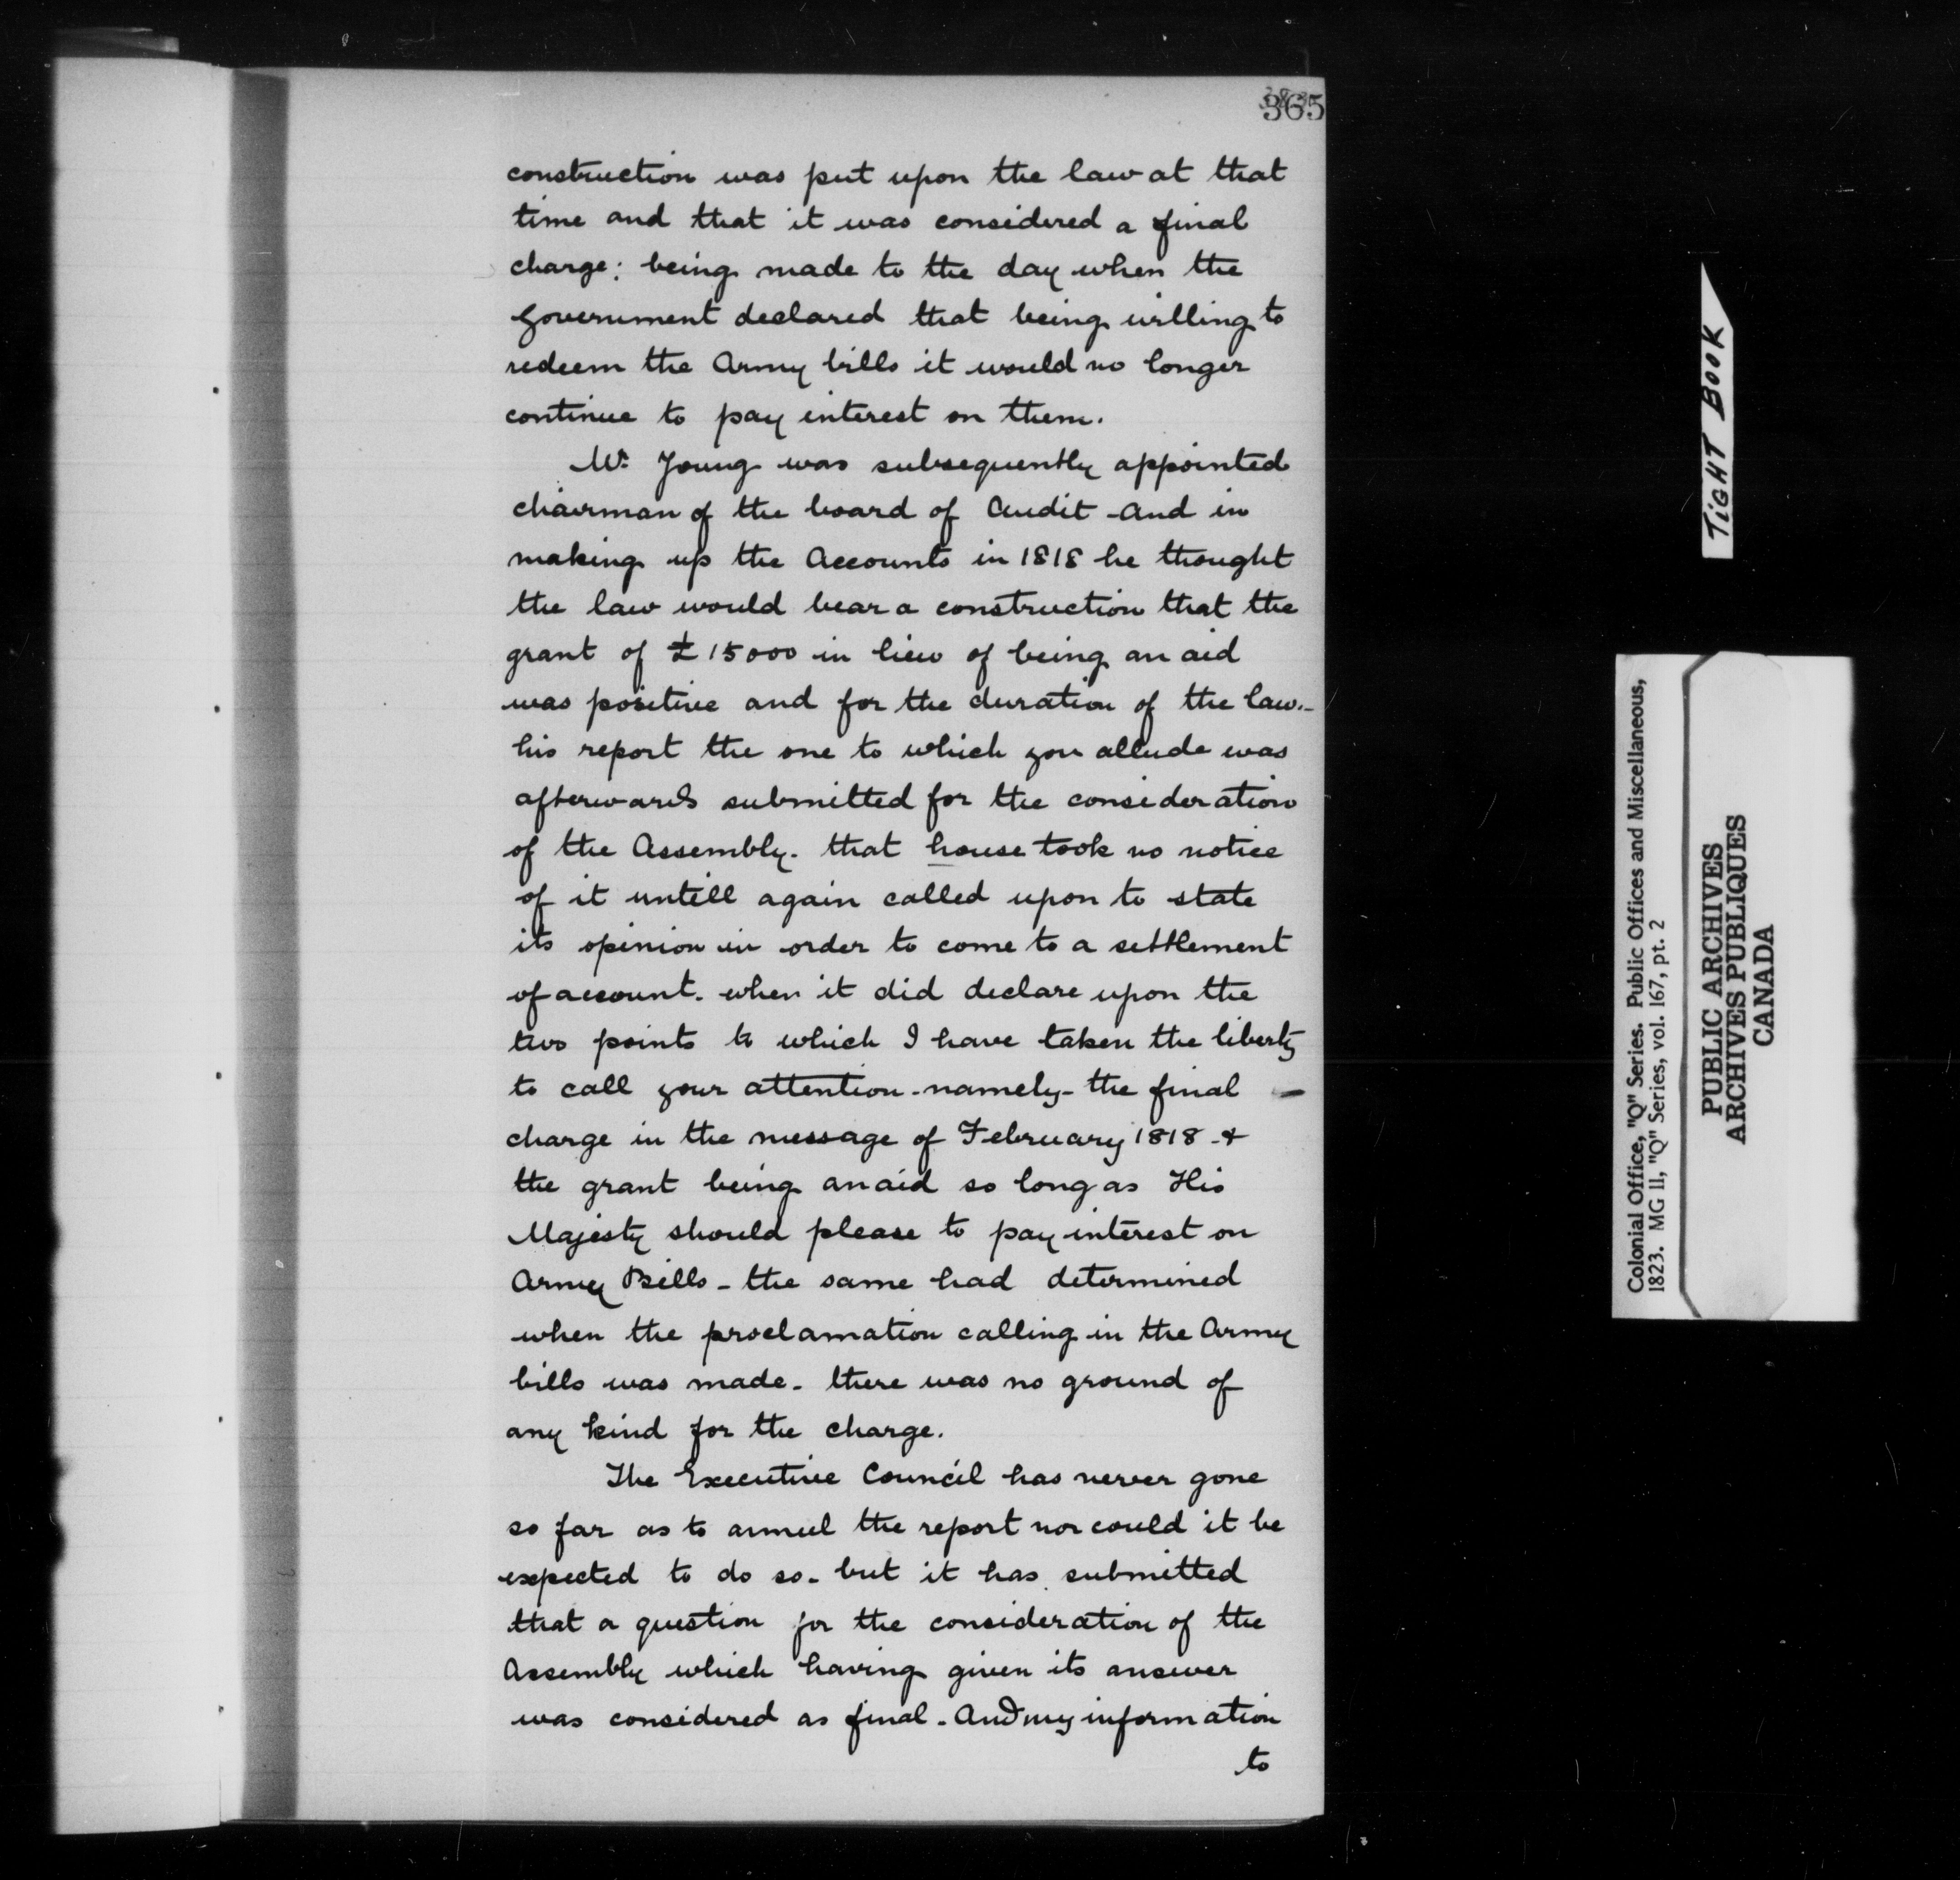 365
construction was put upon the law at that
time and that it was considered a final
charge: being made to the day when the
Government declared that being willing to
redeem the Army bills it would no longer
continue to pay interest on them.
Mr. Young was subsequently appointed
chairman of the board of Audit - and in
making up the Accounts in 1818 he thought
the law would bear a construction that the
grant of £15000 in lieu of being an aid
was positive and for the duration of the law.-
his report the one to which you allude was
afterwards submitted for the consideration
of the Assembly. that house took no notice
of it untill again called upon to state
its opinion in order to come to a settlement
of account. when it did declare upon the
two points to which I have taken the liberty
to call your attention - namely - the final -
charge in the message of February 1818 - &
the grant being an aid so long as His
Majesty should please to pay interest on
Army Bills - the same had determined
when the proclamation calling in the Army
bills was made - there was no ground of
any kind for the charge.
The Executive Council has never gone
so far as to annul the report nor could it be
expected to do so - but it has submitted
that a question for the consideration of the
Assembly which having given its answer
was considered as final - And my information
to
TIGHT BOOK
Colonial Office, "Q" Series. Public Offices and Miscellaneous,
1823. MG 11, "Q" Series, vol. 167, pt. 2
PUBLIC ARCHIVES
ARCHIVES PUBLIQUES
CANADA